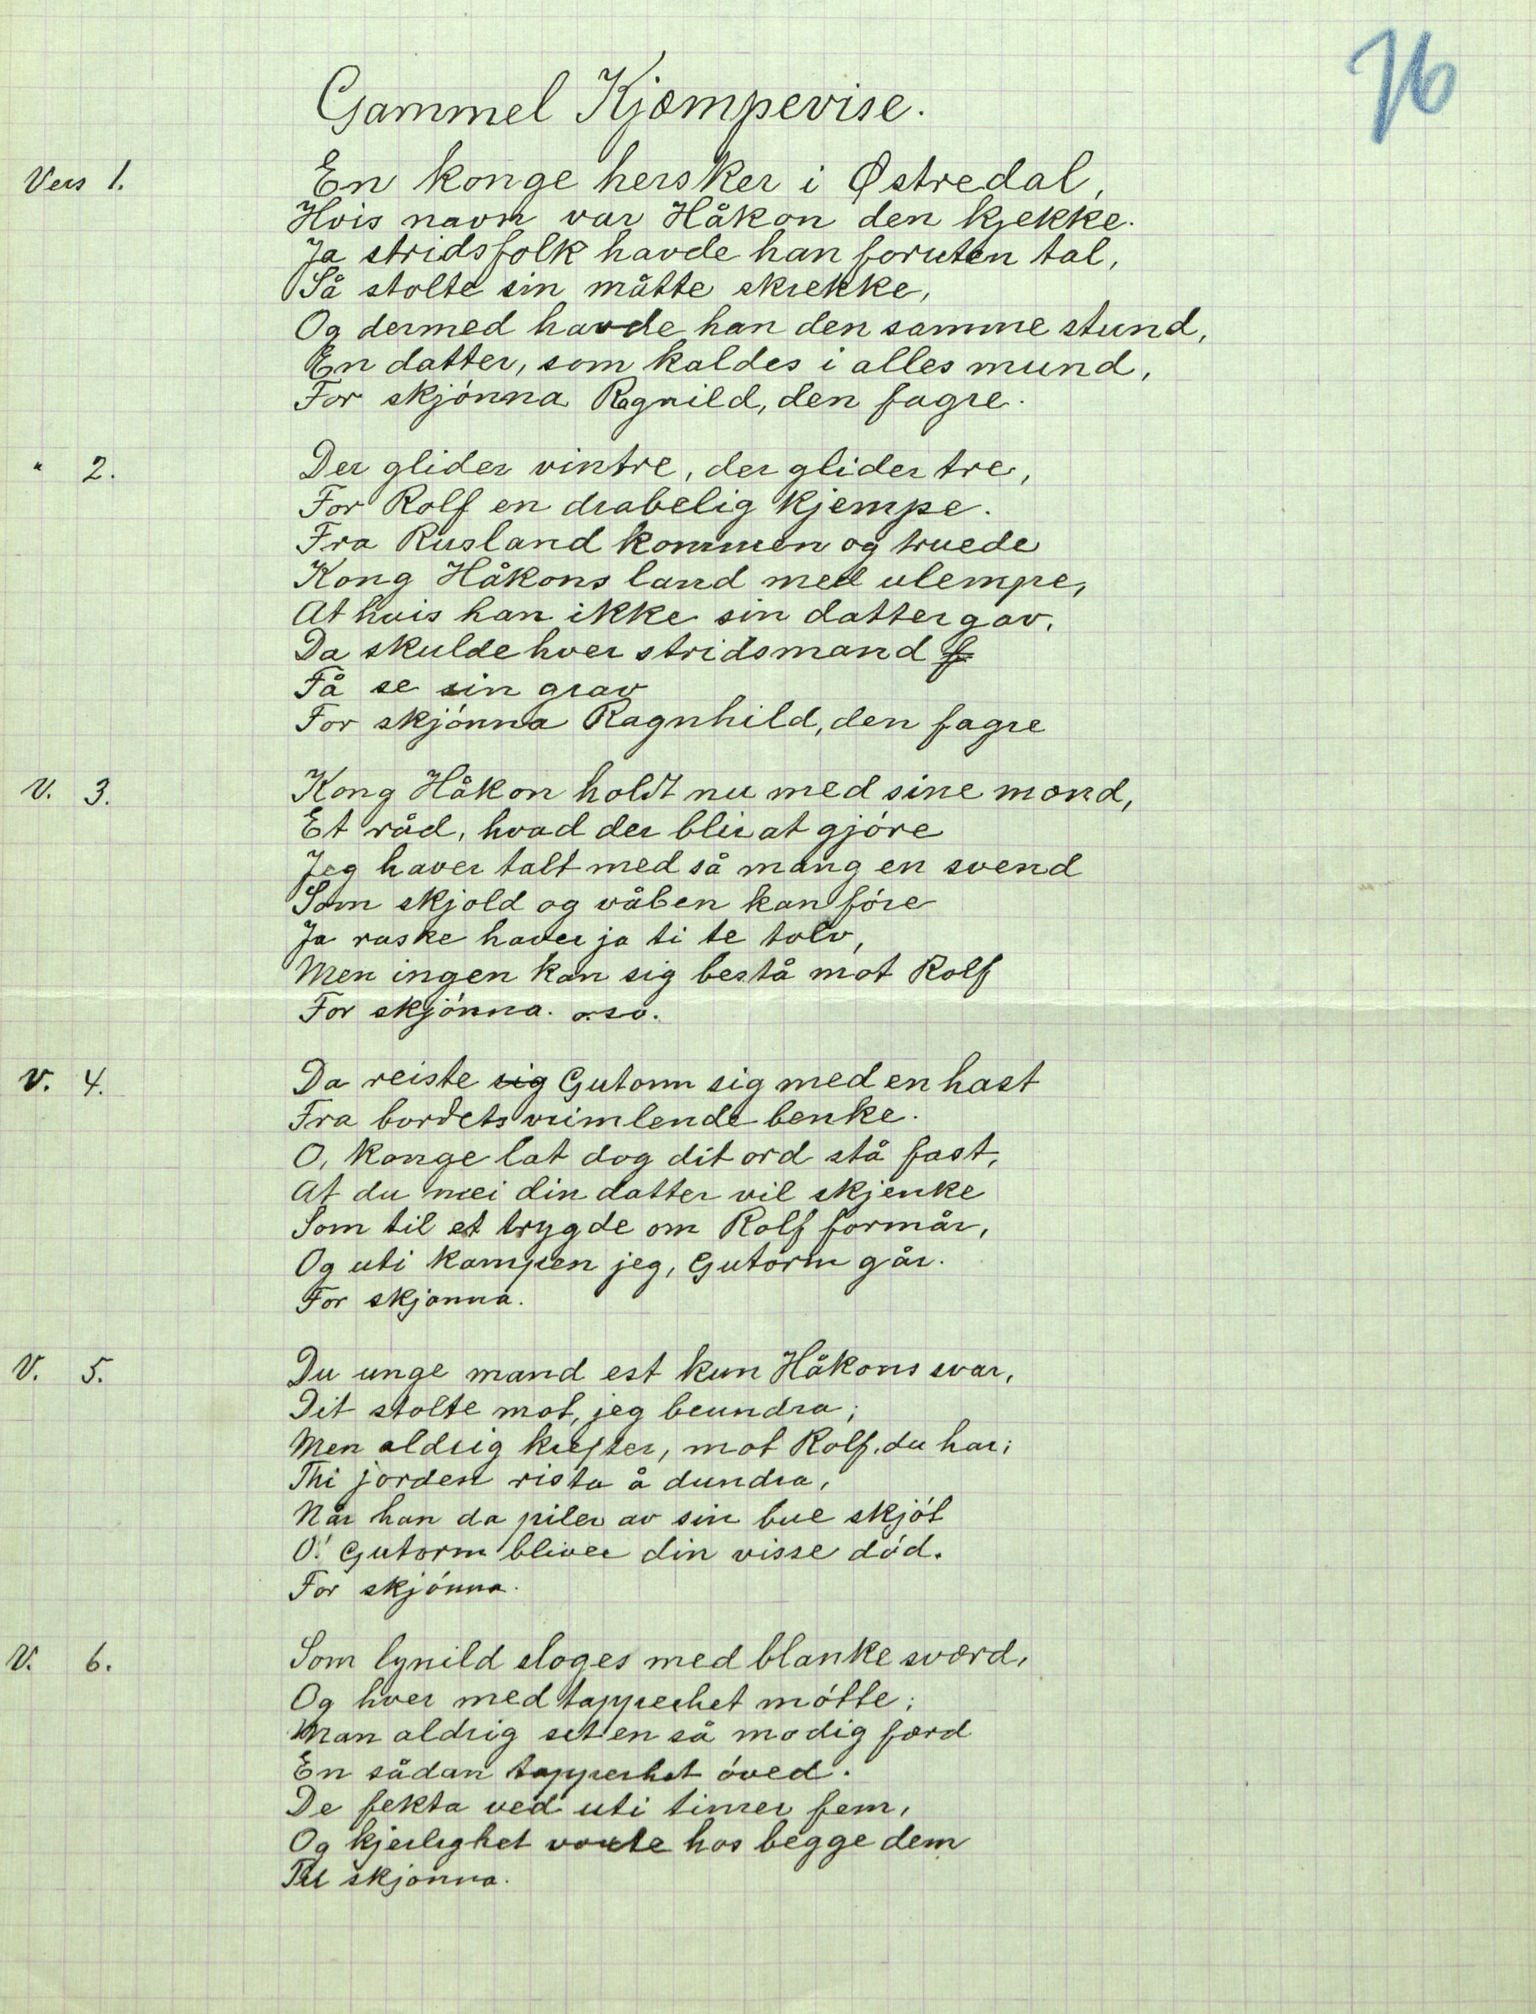 76
Gammel Kjæmpevise.
Vers 1. En konge hersker i Østredal,
Hvis navn var Håkon den kjekke.
Ja stridsfolk havde han foruten tal,
Så stolte sin måtte skrekke,
Og dermed havde han den samme stund,
En datter, som kaldes i alles mund,
For skjónna Ragnild, den fagre.
" 2. Der glider vintre, der glider tre,
For Rolf en drabelig kjempe.
Fra Rusland kommen og truede
Kong Håkons land med ulempe,
At hvis han ikke sin datter gav,
Da skulde hver stridsmand f
Få se sin grav
For skjónna Ragnhild, den fagre
V. 3. Kong Håkon holdt nu med sine mænd,
Et råd, hvad der blir at gjóre
Jeg haver talt med så mang en svend
Som skjold og våben kan fóre
Ja raske haver ja ti te tolv,
Men ingen kan sig bestå mot Rolf
For skjónna. o.sv.
V. 4. Da reiste sig Gutorm sig med en hast
Fra bordets vrimlende benke.
O, konge lat dog dit ord stå fast,
At du mei din datter vil skjenke
Som til et trygde om Rolf formår,
Og uti kampen jeg, Gutorm går.
For skjonna.
V. 5. Du unge mand est kun Håkons svar,
Dit stolte mot, jeg beundra;
Men aldrig krefter, mot Rolf, du har;
Thi jorden rista å dundra,
Når han da piler av sin bue skjót
O! Gutorm bliver din visse dód.
For skjónna.
V. 6. Som lynild sloges med blanke sværd,
Og hver med tapperhet mótte;
Man aldrig set en så modig færd
En sådan tapperhet óved.
De fekta ved uti timer fem,
Og kjerlighet voxte hos begge dem
Til skjonna.